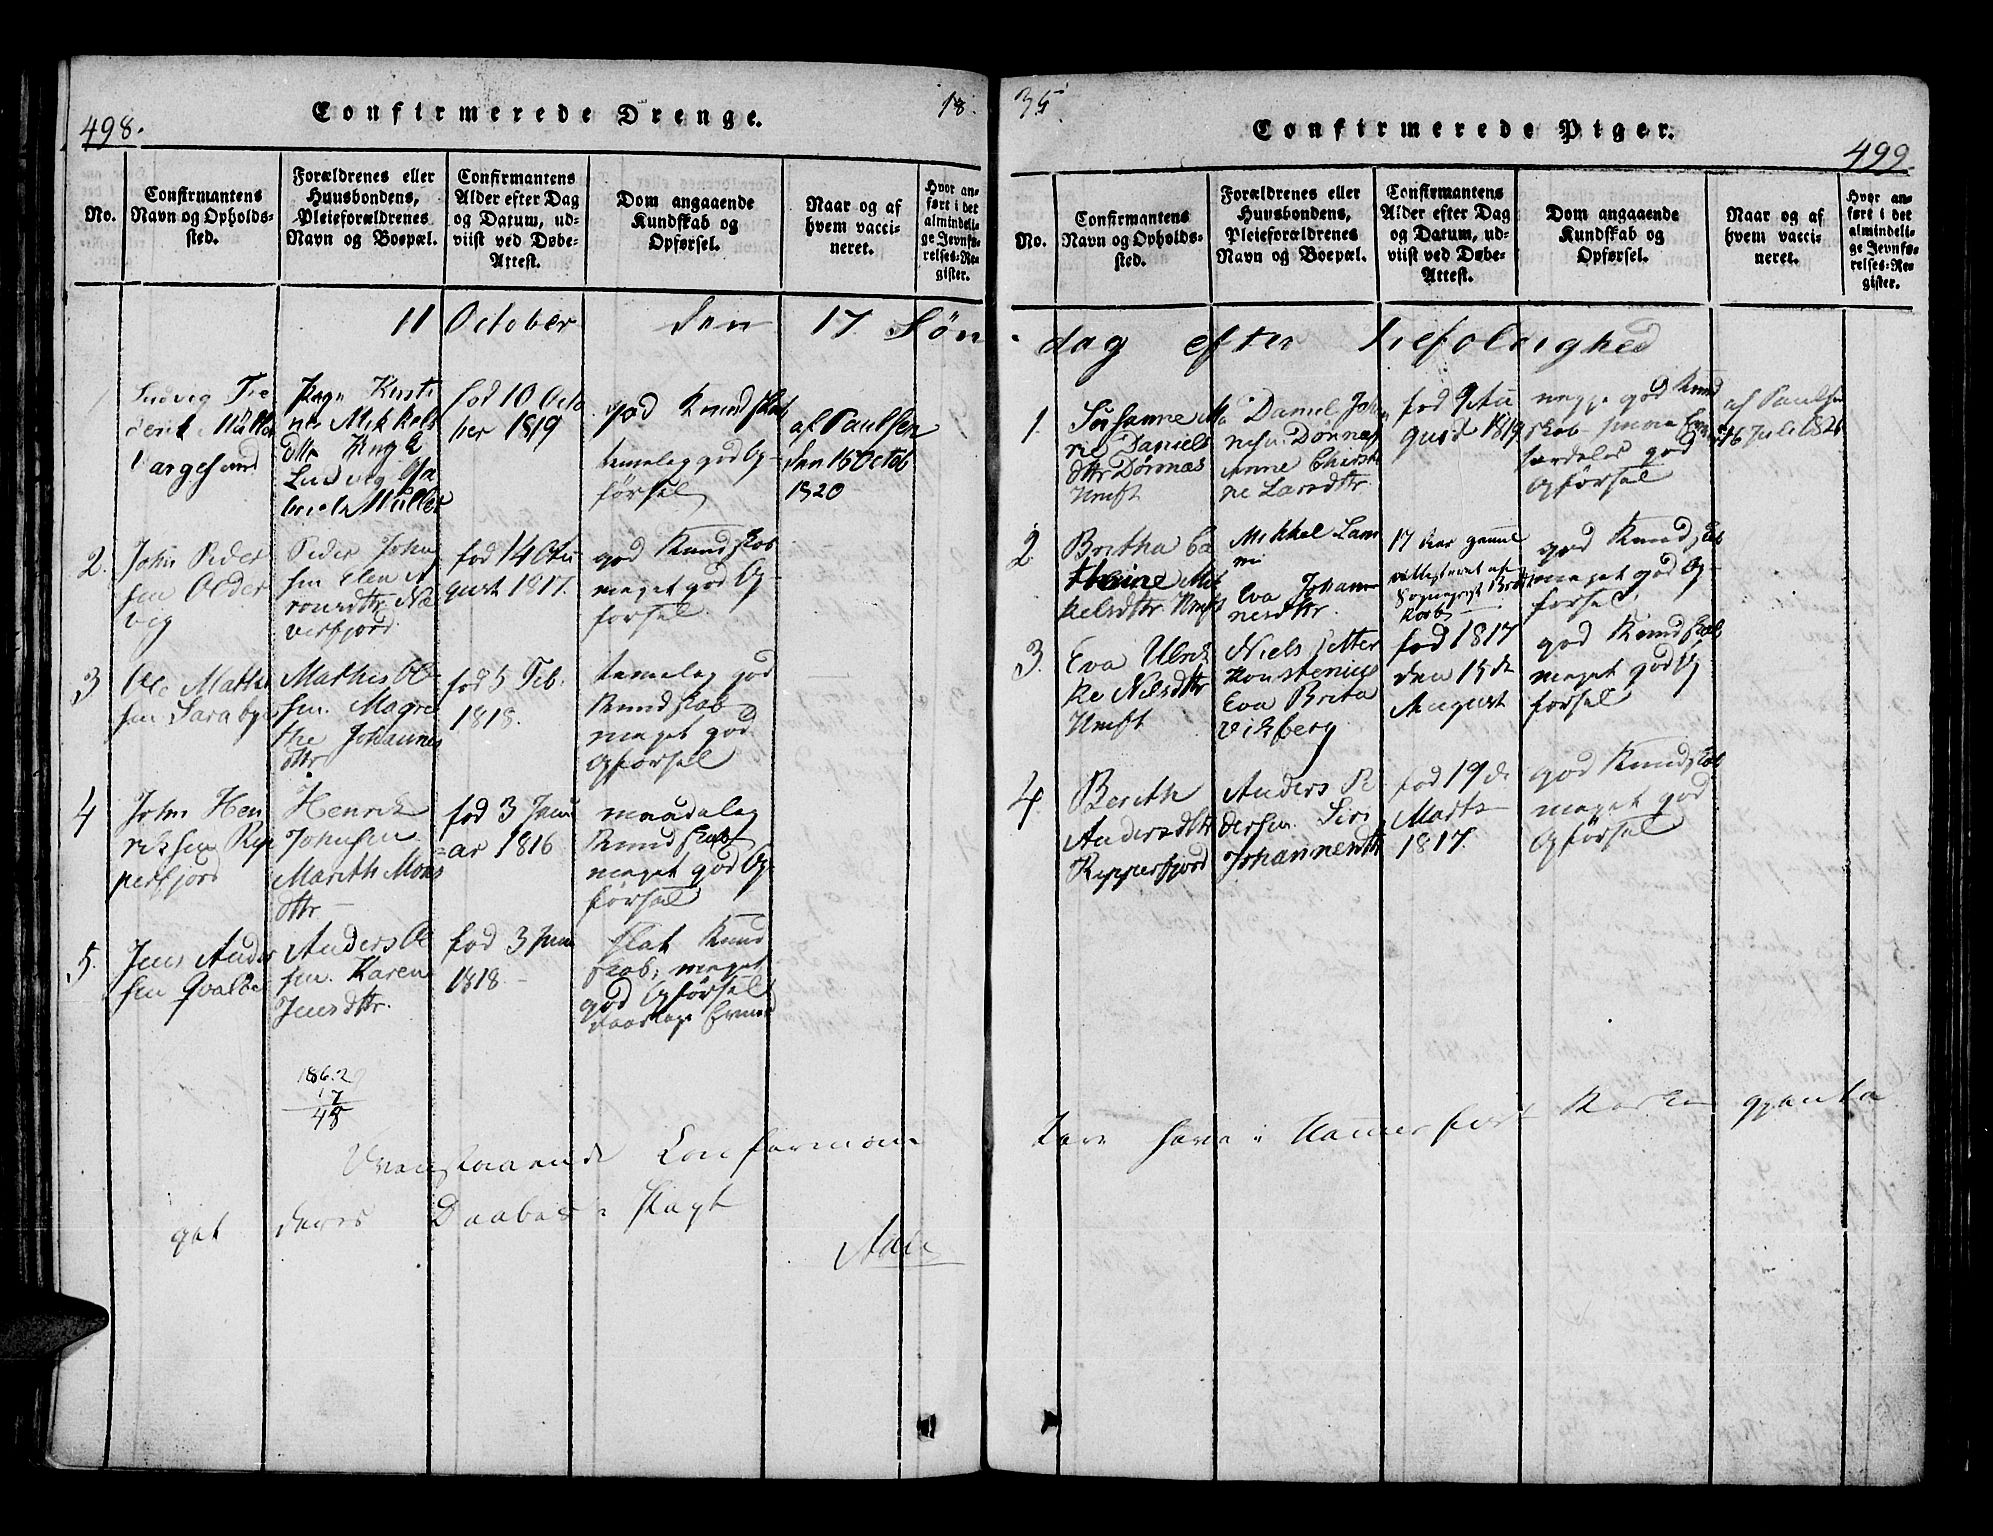 498.
Confirmerede Drenge.
18.
No.
Confirmantens
Navn og Opholds-
sted.
Forældrenes eller
Huusbondens,
Pleieforældrenes
Navn og Boepæl.
Confirmantens
Alder efter Dag
og Datum, ud-
viist ved Døbe-
Attest.
Dom angaaende
Kundskab og
Opførsel.
Naar og af
hvem vacci-
neret.
Hvor an-
ført i det
almindeli-
ge Jevnfø-
relses-Re-
gister.
11 October den 17 Søn
Müller
Mikkels
dtr
Ludvig
Müller
fød 10 Octo
ber 1819
god Kundskab
temelig god Op-
førsel
af Paulsen
den 15 Octob
1820
2.
John Peder
sen Older
vig
Peder John
sen Elen A
ronsdtr Næ
verfjord
fød 14 Au
gust 1817.
god Kundskab
meget god Op-
førsel
3
Ole Mathi
sen Saraby
Mathis Ol
sen. Magre
the Johannes
dtr
fød 5 Feb.
1818.
temelig god
Kundskab
meget god
Opførsel
4
John Hen
riksen Rep
perfjord
Henrik
Johnsen
Mareth Mons
dtr
fød 3 Janu
ar 1816
maadelig
Kundskab
meget god Op-
førsel
5.
Jens Ander
sen Qvalbe
Anders Ol
sen. Karen
Jensdtr.
fød 3 Juni
1818.
slat Kund
skab, meget
god Opførsel
1862
17
45
Ovenstaaende Confirman
get deres Daabes
35
Confirmerede Piger.
499.
No.
Confirmantens
Navn og Opholds-
sted.
Forældrenes eller
Huusbondens,
Pleieforældrenes
Navn og Boepæl.
Confirmantens
Alder efter Dag
og Datum, ud-
viist ved Døbe-
Attest.
Dom angaaende
Kundskab og
Opførsel.
Naar og af
hvem vacci-
neret.
Hvor an-
ført i det
almindeli-
ge Jevnfø-
relses-Re-
gister.
dag efter Trefoldighed
1.
Susanne Ma
rie Daniels
dtr Dønnæs
Hmfst
Daniel Joha
nesn. Dønnæs
Anne Christi
ne Larsdttr.
fød 9 Au
gust 1819
megge god Kund
skab
særdeles god
Opførsel
af Paulsen
2
Britha Ca
thrine Mik
kelsdttr Hmfst
Mikkel Lam
mi
Eva Johan
nesdttr.
17 Aar gammel
god Kundskab
meget god Op-
førsel,
3.
Eva Ulrik
ke Nilsdttr
Hmfst
Niels Petter
Konstenius
Eva Brita
Vikberg
fød 1817
den 15 de
August
god Kundskab
meget god Op
førsel
4.
Bereth
Andersdttr
Repperfjord
Anders Pe
dersen. Siri
Johannesdtr
fød 19 de
Marts
1817.
god Kundskab
meget god
Opførsel
tere have i Hammerfest Kirke